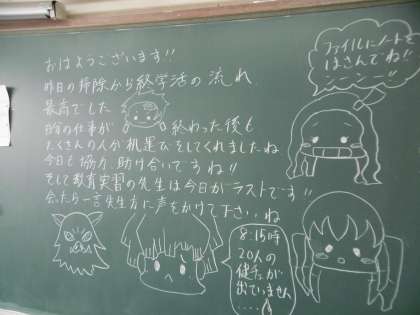 おはようございます!!
昨日の掃除から終学活の流れ
最高でした
自分の仕事が 終わった後も
たくさんの人が机運びをしてくれましたね
今日も協力、助け合いですね!!
そして教育実習の先生は今日がラストです!!
会ったら一言先生方に声をかけて下さいね
ファイルにノートを
はさんでね!!
8:15時
20人の
健チェが
出ていません
....